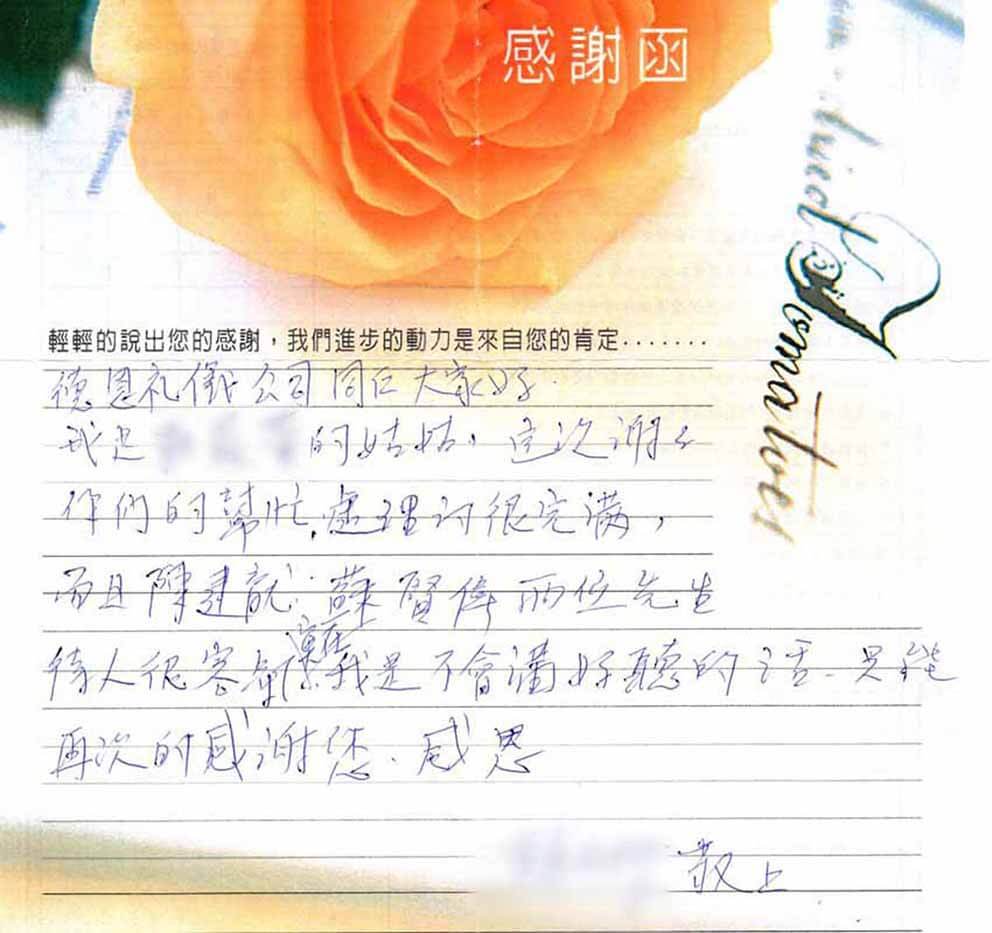 感謝函
輕輕的說出您的感謝，我們進步的動力是來自您的肯定.......
德恩礼儀公司同仁大家好.
我是 的姑姑，這次謝々
你們的幫忙，處理得很完滿，
而且陳建龍.蘇賢偉兩位先生
待人很客氣 我是不會講好聽的話.只能
再次的感謝您.感恩
敬上